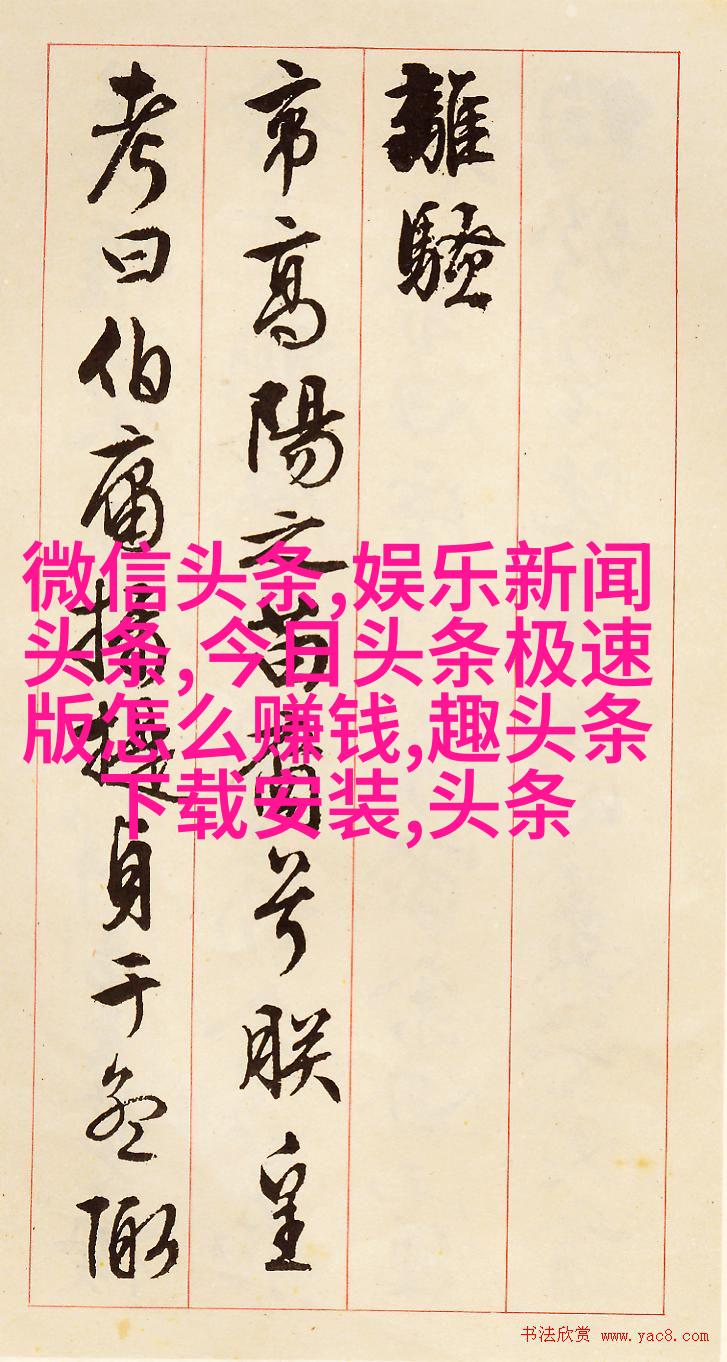 離騷
帝高陽之苗裔兮朕皇
考曰伯庸攝提貞于孟陬
微信头条,娱乐新闻
头条,今日头条极速
版怎么赚钱,趣头条
下载安装,头条
书法欣赏 www.yac8.com